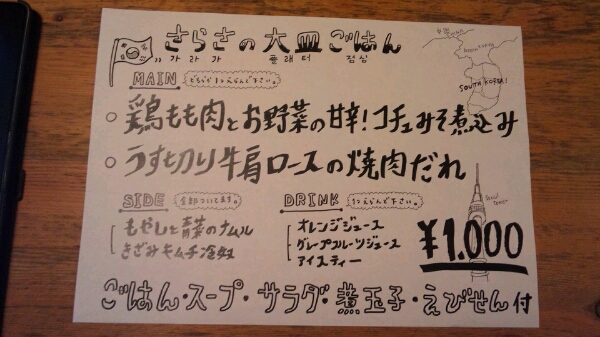 さらさの大皿ごはん
가라가 플래터 점심
MAIN どちらか1つえらんで下さい。
SOUTH KOREA!
○鶏もも肉とお野菜の甘辛!コチュみそ煮込み
○うす切り牛肩ロースの焼肉だれ
SIDE 全部ついてます。
もやしと青菜のナムル
きざみキムチ冷奴
DRINK 1つえらんで下さい。
オレンジジュース
グレープフルーツジュース
アイスティー
SEOUL TOWER
¥1.000
ごはん・スープ・サラダ・煮玉子・えびせん付